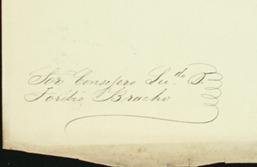 Sor Consejero Lic.do D.
Toribio Bracho